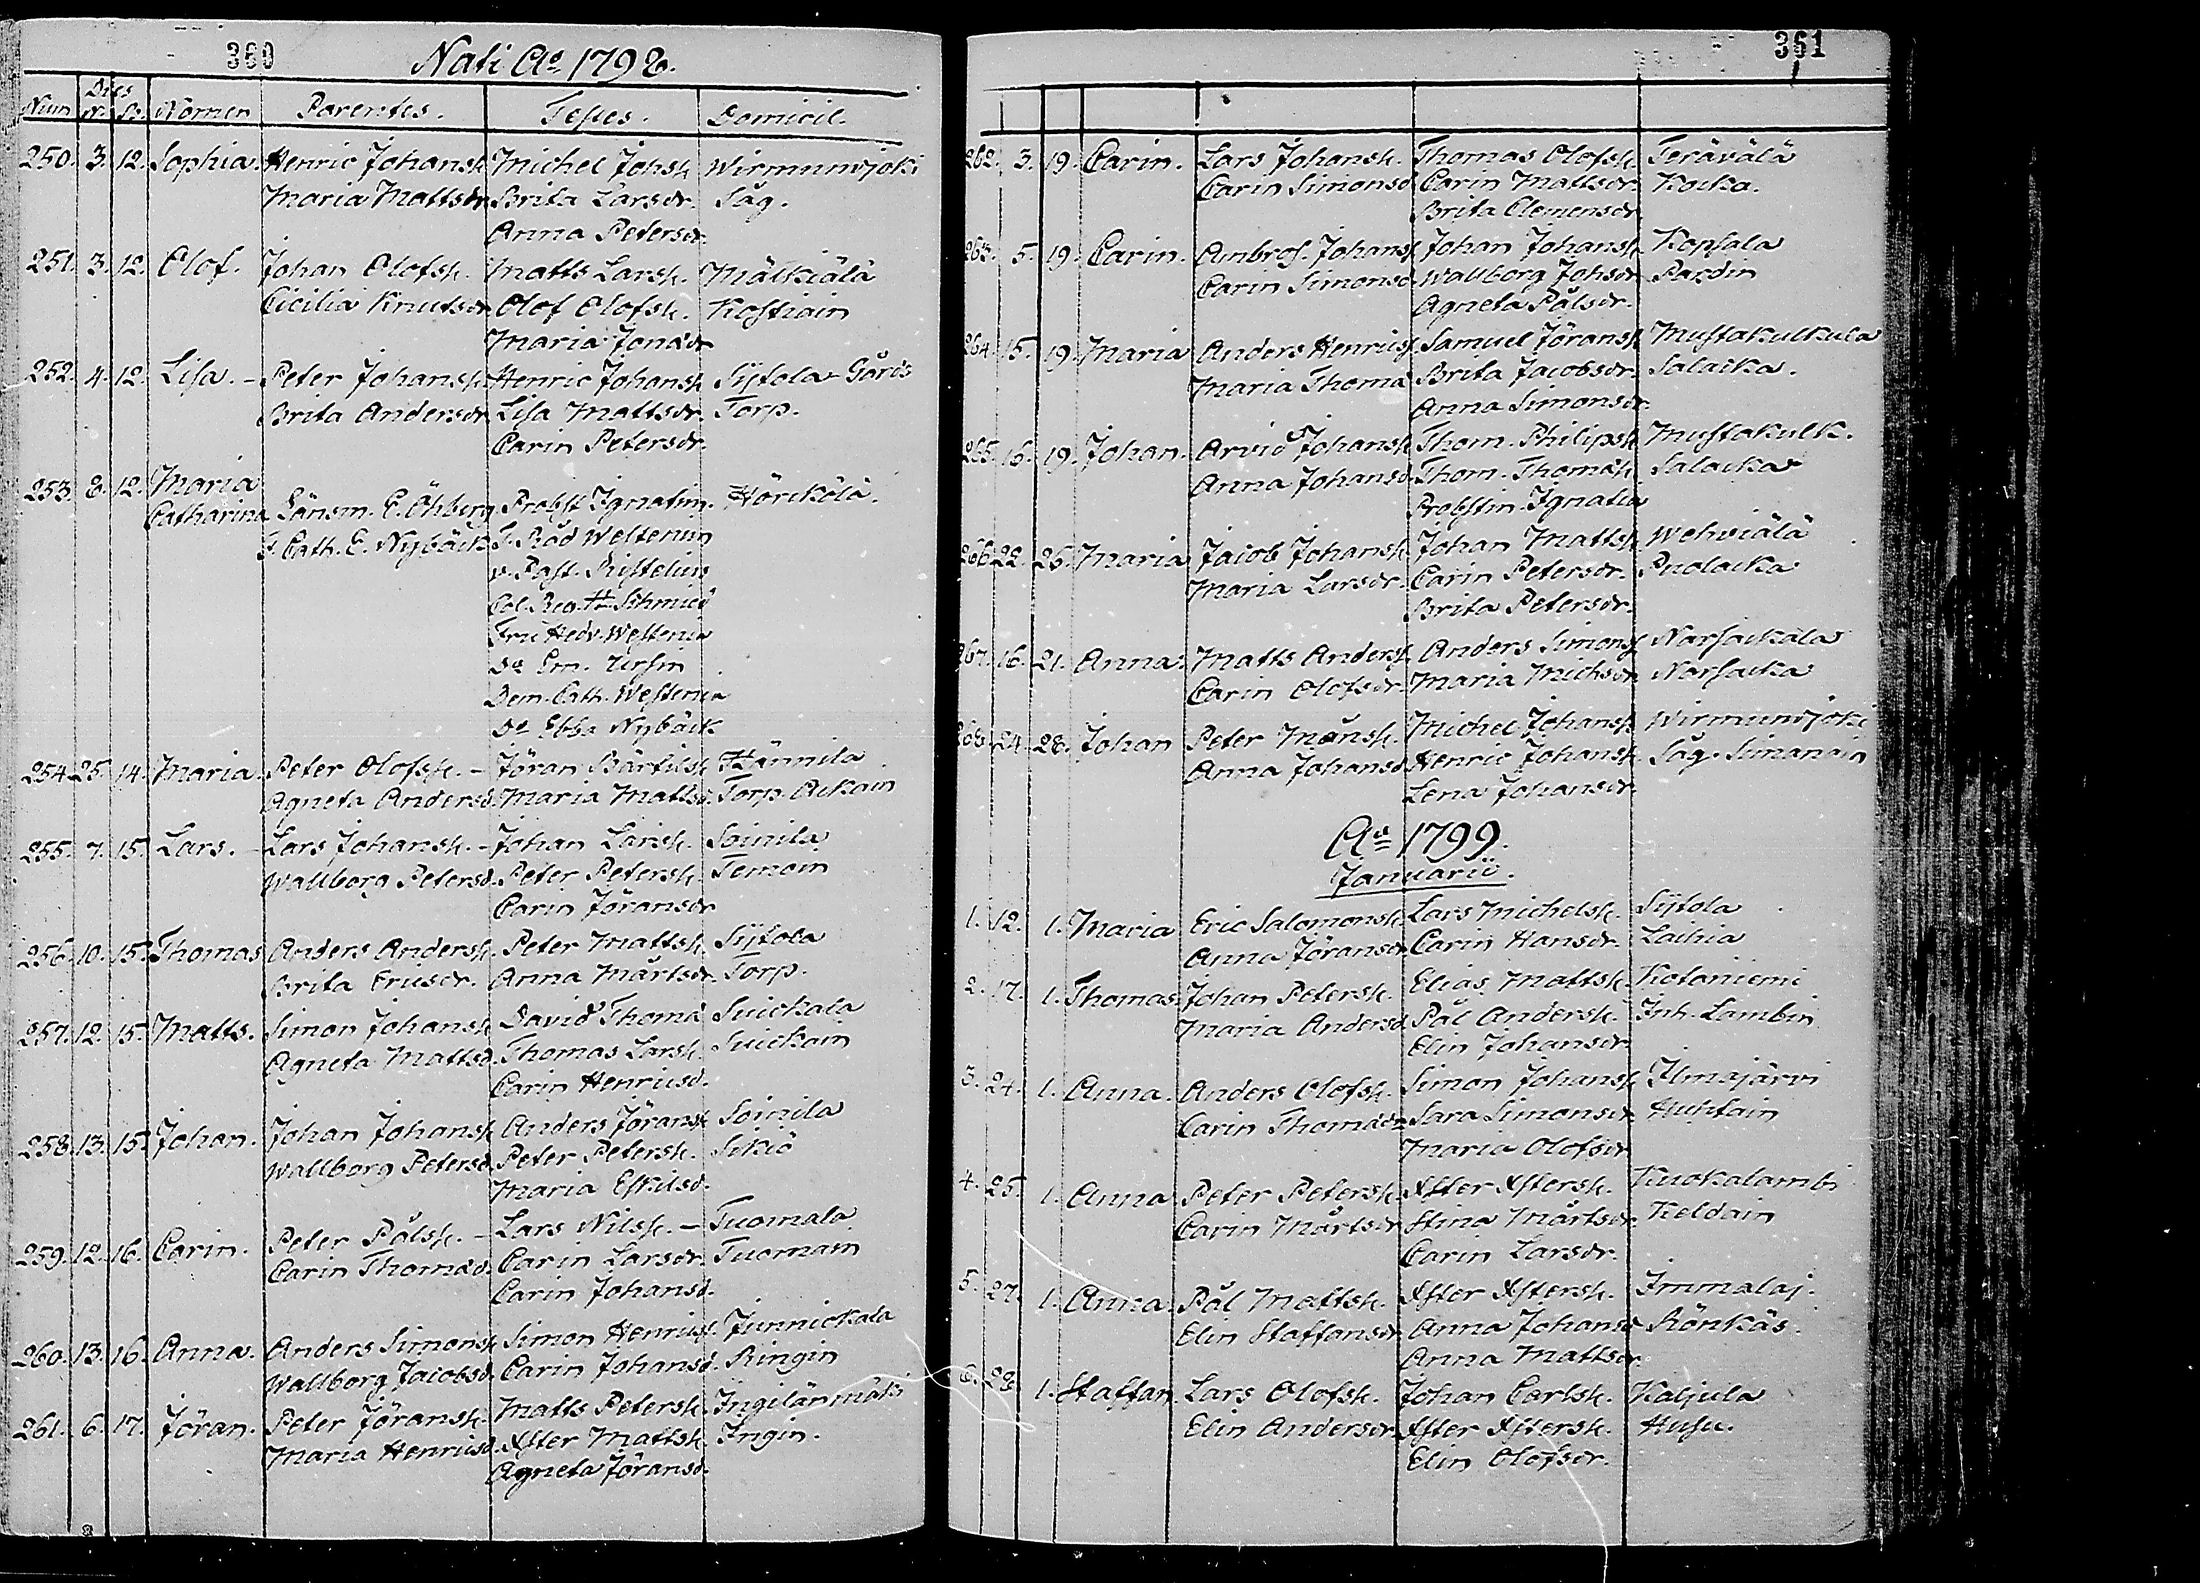 360
Nati Aº 1798.
Num Dies N. B. Nomen Parentes. Testes. Domicil.
250. 3. 12. Sophia. Henric Johansk. Michel Johsk. Wirmunvjoki
Maria Mattsdr. Brita Larsdr. Såg.
Anna Petersdr.
251. 3. 12. Olof. Johan Olofsk. Matts Larsk. Mälkiälä
Cicilia Knutsdr. Olof Olofsk. Kostiain
Maria Jonædr
252. 4. 12. Lisa. - Peter Johansk. Henric Johansk. Sijtola Gårds
Brita Andersdr. Lisa Mattsdr. Torp.
Carin Petersdr.
253. 8. 12. Maria
Catharina Länsm. E. Öhberg Probst Ignatius. Hörckölä.
F. Cath. E. Nybäck F. Råd Westenius
v. Past. Ristelius
Col. Reg. Hr Schmied
Fru Hedv. Westenia
Do Em. Ursin
Dem. Cath. Westenia
Do Ebba Nybäck
254. 25. 14. Maria. Peter Olofsk. - Jöran Bärtilsk. Hännila
Agneta Andersd. Maria Mattsd. Torp. Ackain
255. 7. 15. Lars. - Lars Johansk. - Johan Larsk. Soinila
Wallborg Petersd. Peter Petersk. Temoin
Carin Jöransdr
256. 10. 15. Thomas Anders Andersk. Peter Mattsk. Sijtola
Brita Ericsdr. Anna Mårtsdr. Torp.
257. 12. 15. Matts. Simon Johansk. David Thomæ Suickala
Agneta Mattsd. Thomas Larsk. Suickain
Carin Henricsd.
258. 13. 15. Johan. Johan Johansk. Anders Jöransk. Soinila
Wallborg Petersd. Peter Petersk. Sikiö
Maria Eskilsd.
259. 12. 16. Carin. Peter Pålsk. - Lars Nilsk. - Tuomala
Carin Thomæd. Carin Larsdr. Tuomain
Carin Johansd.
260. 13. 16. Anna. Anders Simonsk. Simon Henricsk. Junnickala
Wallborg Jacobsd. Carin Johansd. Ringin
261. 6. 17. Jöran. Peter Jöransk. Matts Petersk. Ingilänmäki
Maria Henricsd. Xster Mattsk. Ingin.
Agneta Jöransd.
361
262. 3. 19. Carin. Lars Johansk. Thomas Olofsk. Terävälä
Carin Simonsd. Carin Mattsdr. Kocka.
Brita Clemensdr
263. 5. 19. Carin. Ambros. Johansk. Johan Johansk. Konsala
Carin Simonsd. Wallborg Johsdr. Pardin
Agneta Pålsdr.
264. 15. 19. Maria Anders Henricsk. Samuel Jöransk. Mustakulkula
Maria Thomæ Brita Jacobsdr. Salacka.
Anna Simonsdr.
265. 16. 19. Johan. Arvid Johansk. Thom. Philipsk. Mustakulk.
Anna Johansd. Thom. Thomæsk. Salacka
Probstin Ignatia
266. 22. 26. Maria Jacob Johansk. Johan Mattsk. Wehviälä
Maria Larsdr. Carin Petersdr. Puolacka
Brita Petersdr.
267. 16. 21. Anna. Matts Andersk. Anders Simonsk. Narsackala
Carin Olofsdr. Maria Michsdr. Narsacka
268. 24. 28. Johan Peter Månsk. Michel Johansk. Wirmunvjoki
Anna Johansd. Henric Johansk. Såg. Simanain
Lena Johansdr.
Aº 1799.
Januarii.
1. 12. 1. Maria Eric Salomonsk. Lars Michelsk. Sijtola
Anna Jöransdr. Carin Hansdr. Lachia
2. 17. 1. Thomas. Johan Petersk. Elias Mattsk. Kotaniemi
Maria Andersd. Pål Andersk. Inh. Lambin
Elin Johansdr.
3. 24. 1. Anna. Anders Olofsk. Simon Johansk. Ilmajärvi
Carin Thomædr. Sara Simonsdr. Huhtain
Maria Olofsdr.
4. 25. 1. Anna Peter Petersk. Xster Xstersk. Kuokalambi
Carin Mårtsdr. Stina Mårtsdr. Keldain
Carin Larsdr.
5. 27. 1. Anna. Pål Mattsk. Xster Xstersk. Immalaj.
Elin Staffansdr. Anna Johansd. Rönkäs.
Anna Mattsdr.
6. 28. 1. Staffan. Lars Olofsk. Johan Carlsk. Kaljula
Elin Andersdr. Xster Xstersk. Husu.
Elin Olofsdr.